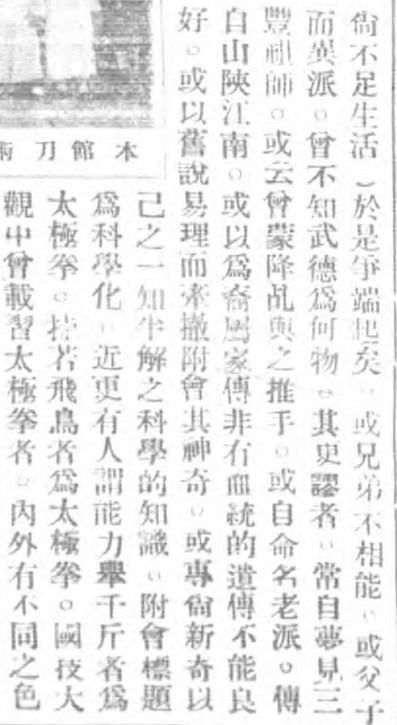 尙不足生活）於是爭端起矣。或兄弟不相能。或父子
而異派。曾不知武德爲何物。其更謬者。常自夢見三
豐祖師。或云曾蒙降乩與之推手。或自命名老派。傳
自山陝江南。或以爲裔屬家傳非有血統的道傳不能良
好。或以舊說易理而牽撤附會其神奇。或專尙新奇以
己之一知半解之科學的知識。附會標題
爲科學化。近更有人謂能力舉千斤者爲
太極拳。捷若飛鳥者爲太極拳。國技大
觀中曾載習太極拳者。內外有不同之色
本館刀術